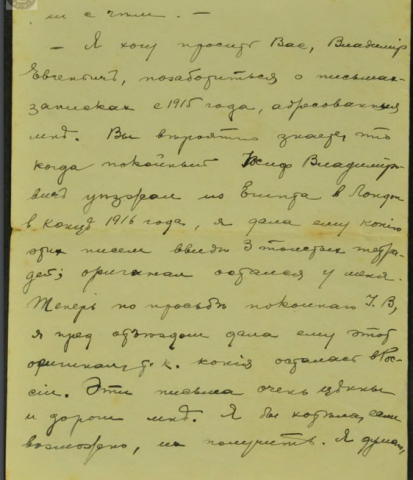 и с чим. –
– Я хочу просить Вас, Владимир
Евгеньевич, позаботиться о письмах-
записках с 1915 года, адресованных
мнѣ. Вы вѣроятно знаете, что
когда покойный Владимiро-
вичъ уѣзжал из Египта в Лондон
в концѣ 1916 года, я дала ему копiю
этих писем ввидѣ 3 толстых тетра-
дей; оригинал остался у меня.
Теперь по просьбѣ покойнаго I. В,
я пред отъѣздом дала ему этот
оригинал, т. к. копiя осталась в Рос-
сiи. Эти письма очень цѣнны
и дороги мнѣ. Я бы хотѣла, если
возможно, их получить. Я думаю,